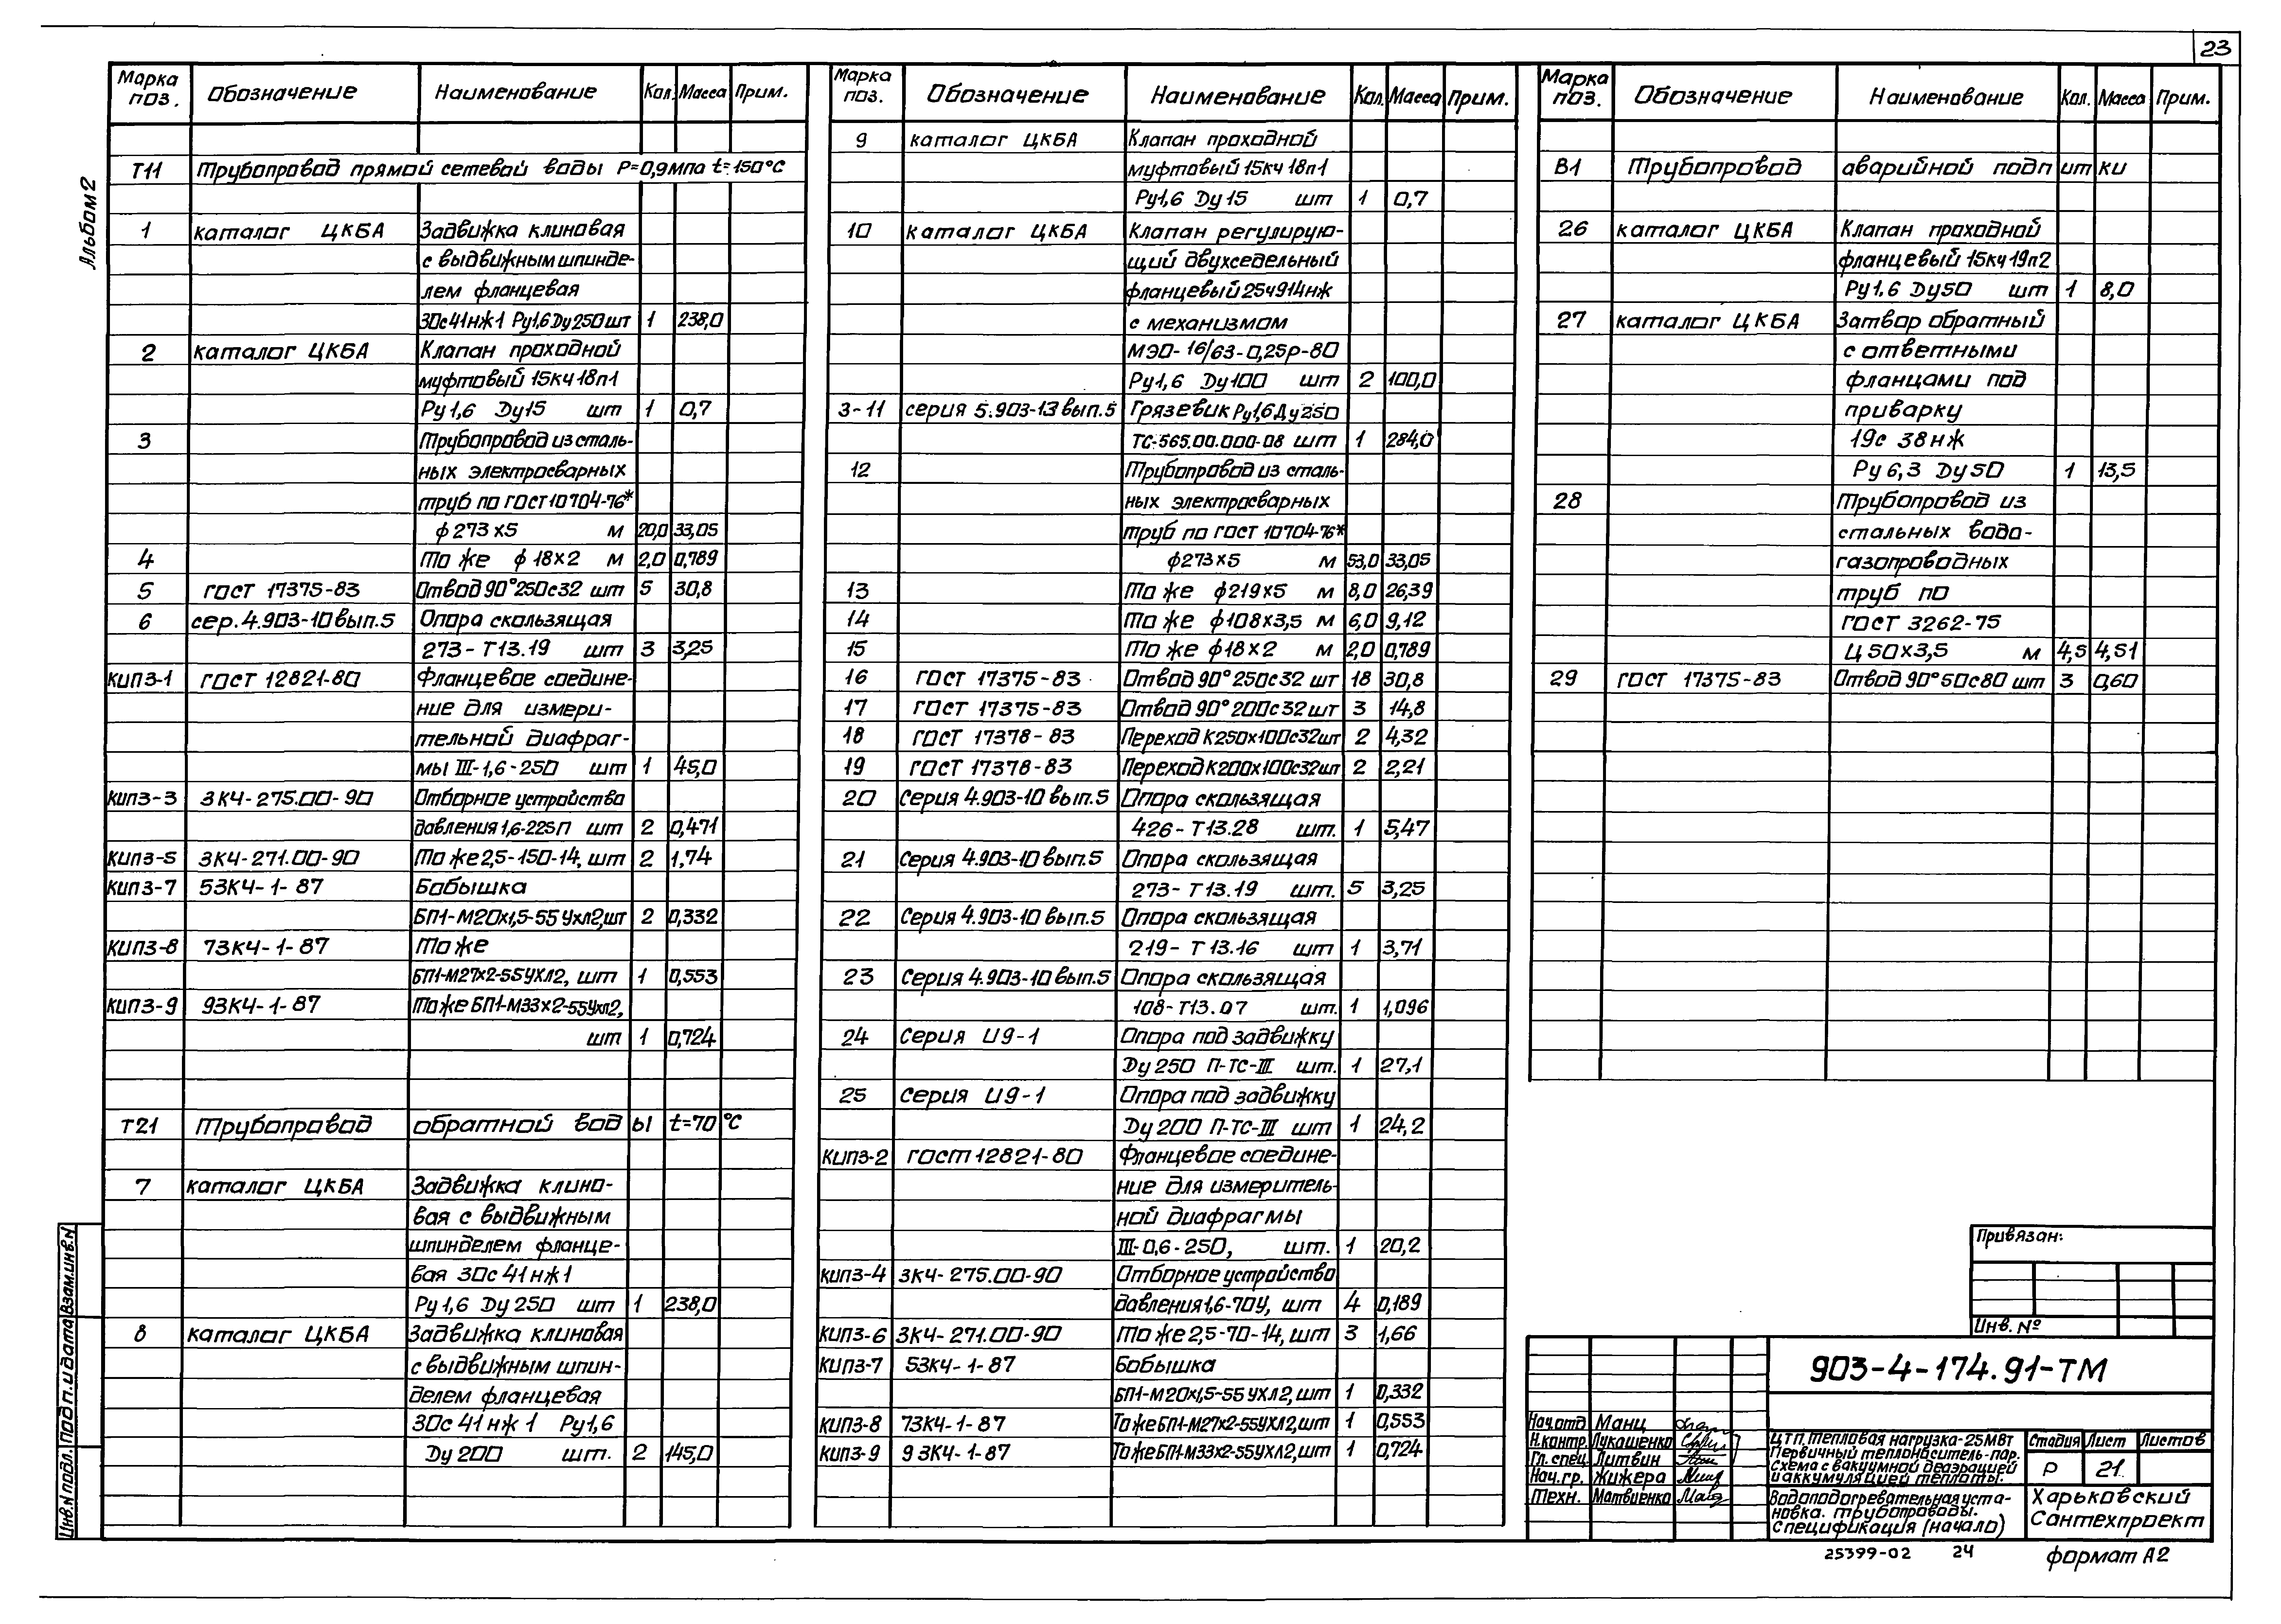 23
Альбом 2
Марка поз. Обозначение Наименование Кол. Масса Прим.
Т11 Трубопровод прямой сетевой воды Р=0,9мпа t=150°С
1 каталог ЦКБА Задвижка клиновая
с выдвижным шпинде-
лем фланцевая
30с41нж1 Ру1,6 Ду250 шт 1 238,0
2 каталог ЦКБА Клапан проходной
муфтовый 15кч18п1
Ру1,6 Ду15 шт 1 0,7
3 Трубопровод из сталь-
ных электросварных
труб по ГОСТ 10704-76*
ф273х5 м 20,0 33,05
4 То же ф18х2 м 2,0 0,789
5 ГОСТ 17375-83 Отвод 90°250с32 шт 5 30,8
6 сер.4.903-10 вып.5 Опора скользящая
273-Т13.19 шт 3 3,25
КИП3-1 ГОСТ 12821-80 Фланцевое соедине-
ние для измери-
тельной диафраг-
мы III-1,6-250 шт 1 45,0
КИП3-3 3КЧ-275.00-90 Отборное устройство
давления 1,6-225П шт 2 0,471
КИП3-5 3КЧ-271.00-90 То же 2,5-150-14, шт 2 1,74
КИП3-7 53КЧ-1-87 Бобышка
БП1-М20х1,5-55 УХЛ2, шт 2 0,332
КИП3-8 73КЧ-1-87 То же
БП1-М27х2-55УХЛ2, шт 1 0,553
КИП3-9 93КЧ-1-87 То же БП1-М33х2-55УХЛ2,
шт 1 0,724
Т21 Трубопровод обратной воды t=70°С
7 каталог ЦКБА Задвижка клино-
вая с выдвижным
шпинделем фланце-
вая 30с41нж1
Ру1,6 Ду250 шт 1 238,0
8 каталог ЦКБА Задвижка клиновая
с выдвижным шпин-
делем фланцевая
30с41нж1 Ру1,6
Ду200 шт. 2 145,0
Марка поз. Обозначение Наименование Кол. Масса Прим.
9 каталог ЦКБА Клапан проходной
муфтовый 15кч18п1
Ру1,6 Ду15 шт 1 0,7
10 каталог ЦКБА Клапан регулирую-
щий двухседельный
фланцевый 25ч914нж
с механизмом
МЭО-16/63-0,25р-80
Ру1,6 Ду100 шт 2 100,0
3-11 серия 5.903-13 вып.5 Грязевик Ру1,6 Ду250
ТС-565.00.000-08 шт 1 284,0
12 Трубопровод из сталь-
ных электросварных
труб по ГОСТ 10704-76*
ф273х5 м 53,0 33,05
13 То же ф219х5 м 8,0 26,39
14 То же ф108х3,5 м 6,0 9,12
15 То же ф18х2 м 2,0 0,789
16 ГОСТ 17375-83 Отвод 90°250с32 шт 18 30,8
17 ГОСТ 17375-83 Отвод 90°200с32 шт 3 14,8
18 ГОСТ 17378-83 Переход К250х100с32 шт 2 4,32
19 ГОСТ 17378-83 Переход К200х100с32 шт 2 2,21
20 Серия 4.903-10 вып.5 Опора скользящая
426-Т13.28 шт. 1 5,47
21 Серия 4.903-10 вып.5 Опора скользящая
273-Т13.19 шт. 5 3,25
22 Серия 4.903-10 вып.5 Опора скользящая
219-Т13.16 шт 1 3,71
23 Серия 4.903-10 вып.5 Опора скользящая
108-Т13.07 шт. 1 1,096
24 Серия И9-1 Опора под задвижку
Ду250 П-ТС-III шт. 1 27,1
25 Серия И9-1 Опора под задвижку
Ду200 П-ТС-III шт 1 24,2
КИП3-2 ГОСТ 12821-80 Фланцевое соедине-
ние для измеритель-
ной диафрагмы
III-0,6-250, шт. 1 20,2
КИП3-4 3КЧ-275.00-90 Отборное устройство
давления 1,6-70У, шт 4 0,189
КИП3-6 3КЧ-271.00-90 То же 2,5-70-14, шт 3 1,66
КИП3-7 53КЧ-1-87 Бобышка
БП1-М20х1,5-55 УХЛ2, шт 1 0,332
КИП3-8 73КЧ-1-87 То же БП1-М27х2-55УХЛ2, шт 1 0,553
КИП3-9 93КЧ-1-87 То же БП1-М33х2-55УХЛ2, шт 1 0,724
Марка поз. Обозначение Наименование Кол. Масса Прим.
В1 Трубопровод аварийной подпитки
26 каталог ЦКБА Клапан проходной
фланцевый 15кч19п2
Ру1,6 Ду50 шт 1 8,0
27 каталог ЦКБА Затвор обратный
с ответными
фланцами под
приварку
19с 38нж
Ру 6,3 Ду50 1 13,5
28 Трубопровод из
стальных водо-
газопроводных
труб по
ГОСТ 3262-75
Ц 50х3,5 м 4,5 4,51
29 ГОСТ 17375-83 Отвод 90°50с80 шт 3 0,60
Привязан:
Инв. №
903-4-174.91-ТМ
Нач.отд Манц
Н.контр. Лукашенко
Гл.спец. Литвин
Нач.гр. Жижера
Техн. Матвиенко
ЦТП. тепловая нагрузка-25МВт
Первичный теплоноситель-пар.
Схема с вакуумной деаэрацией
и аккумуляцией теплоты.
Стадия Лист Листов
Р 21
Водоподогревательная уста-
новка. трубопроводы.
Спецификация (начало)
Харьковский
Сантехпроект
25399-02 24 формат А2
Инв.N подл. Подп. и дата Взам.инв.N